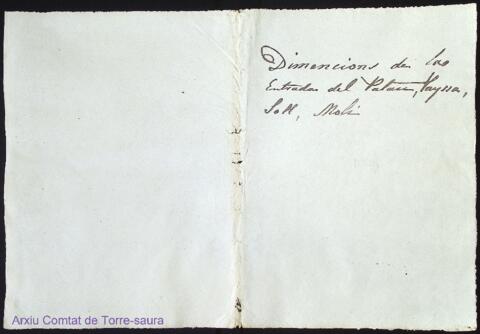 Dimencions de las
Entradas del Palau, Payssa,
Soll, Moli
Arxiu Comtat de Torre-saura